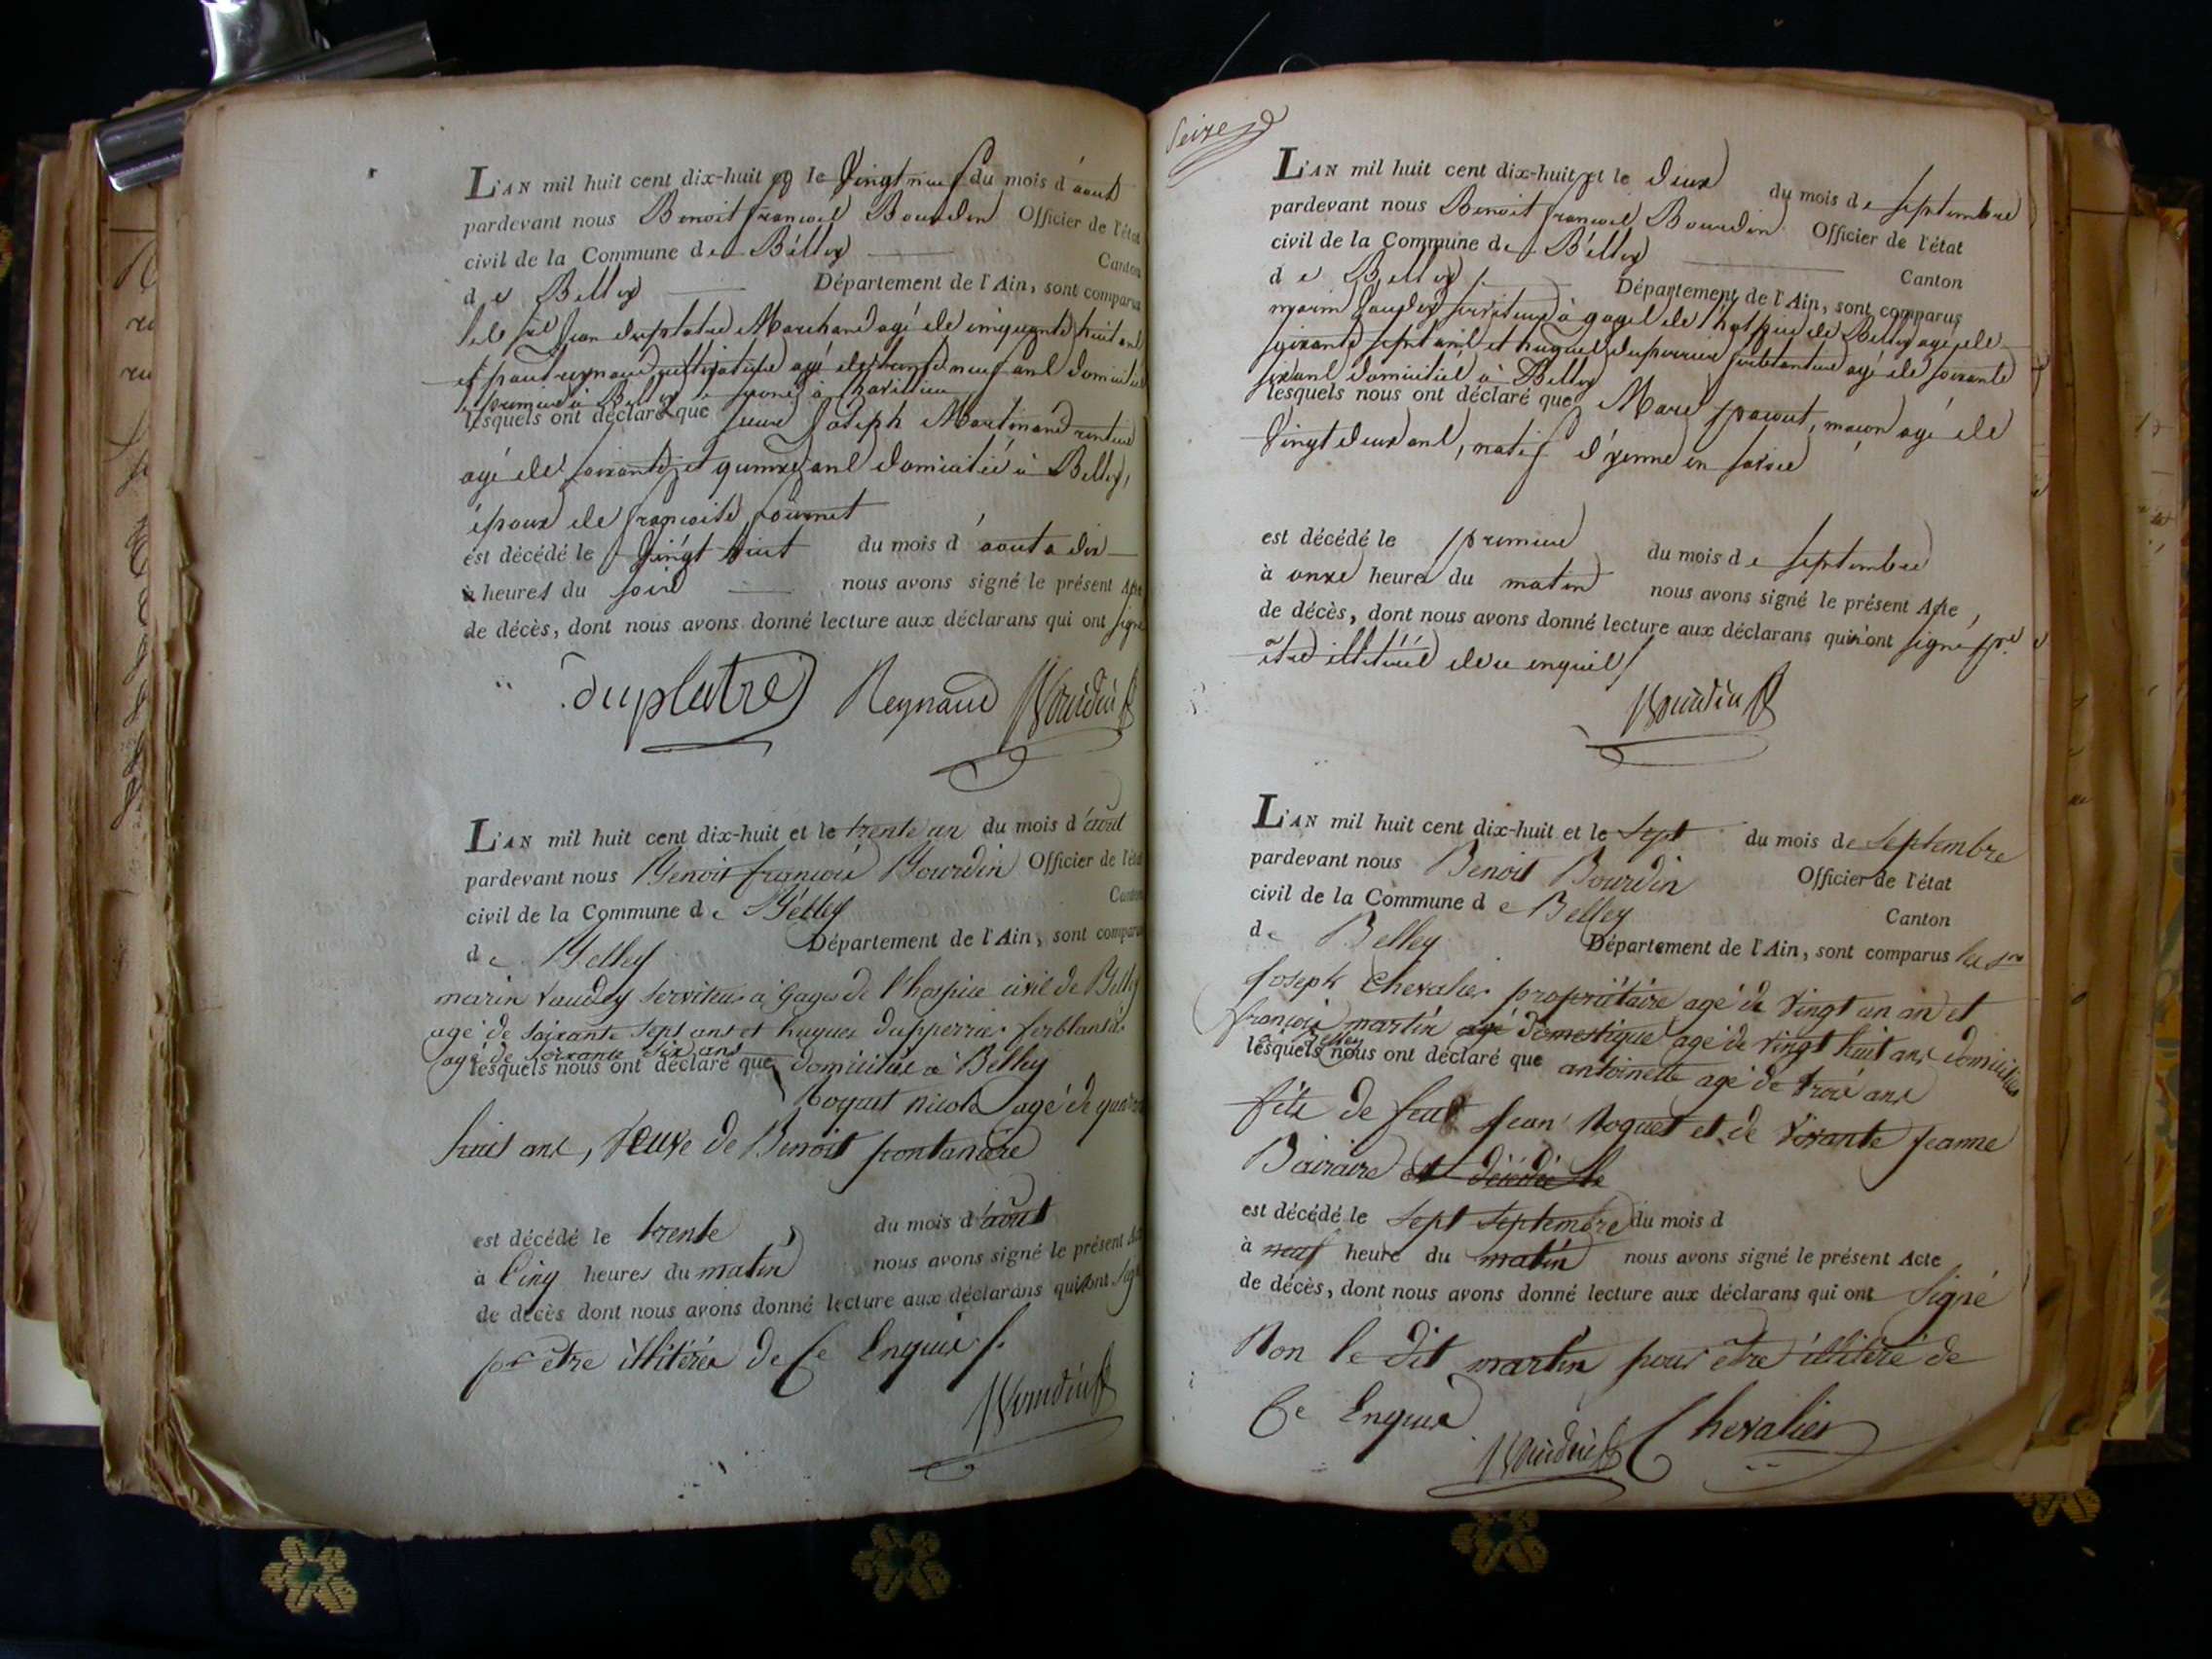 L'AN mil huit cent dix-huit et le Vingt neuf du mois d'aout
pardevant nous Benoit françois Bourdin Officier de l'état
civil de la Commune de Belley Canton
de Belley Département de l'Ain, sont comparus
les srs Jean duplatre Marchand agé de cinquante huit ans
et paul reynaud cultivateur agé de trente neuf ans domiciliés
le premier à Belley le second à
lesquels ont déclaré que sieur Joseph Martinand rentier
agé de soixante et quinze ans domicilié à Belley,
époux de françoise fournet
est décédé le Vingt huit du mois d'aout a dix
heures du soir nous avons signé le présent Acte
de décès, dont nous avons donné lecture aux déclarans qui ont signé
duplatre Reynaud Bourdin
L'AN mil huit cent dix-huit et le trente un du mois d'août
pardevant nous Benoit françois Bourdin Officier de l'état
civil de la Commune de Belley Canton
de Belley Département de l'Ain, sont comparus
marin Vaudey serviteur à gages de l'hospice civil de Belley
agé de soixante sept ans et hugues dupperrier ferblantier
agé de soixante six ans
lesquels nous ont déclaré que domiciliés à Belley
nicole agé de
huit ans, Veuve de Benoit fontanière
est décédé le trente du mois d'août
à Cinq heures du matin nous avons signé le présent Acte
de décès dont nous avons donné lecture aux déclarans qui n'ont signé
pr être illitérés de Ce Enquis /.
Bourdin
Seize
L'AN mil huit cent dix-huit et le deux du mois de septembre
pardevant nous Benoit françois Bourdin Officier de l'état
civil de la Commune de Belley Canton
de Belley Département de l'Ain, sont comparus
marin Vaudey serviteur à gages de l'hospice de Belley agé de
soixante sept ans et hugues duperrier ferblantier agé de soixante
six ans domiciliés à Belley
lesquels nous ont déclaré que Marc pacout, maçon agé de
Vingt deux ans, natif d'yenne en savoie
est décédé le premier du mois de septembre
à onze heures du matin nous avons signé le présent Acte,
de décès, dont nous avons donné lecture aux déclarans qui n'ont signé pr
être illitérés de ce enquis /
Bourdin
L'AN mil huit cent dix-huit et le sept du mois de septembre
pardevant nous Benoit Bourdin Officier de l'état
civil de la Commune de Belley Canton
de Belley Département de l'Ain, sont comparus les srs
Joseph Chevalier propriétaire agé de Vingt un an et
françois martin agé domestique agé de vingt huit ans domiciliés
à Belley
lesquels nous ont déclaré que antoinette agé de trois ans
fille de feu Jean Roguet et de vivante Jeanne
Bairaire est décédée le
est décédé le sept septembre du mois d
à neuf heure du matin nous avons signé le présent Acte
de décès, dont nous avons donné lecture aux déclarans qui ont Signé
Non le dit martin pour être illitéré de
Ce Enquis
Bourdin Chevalier